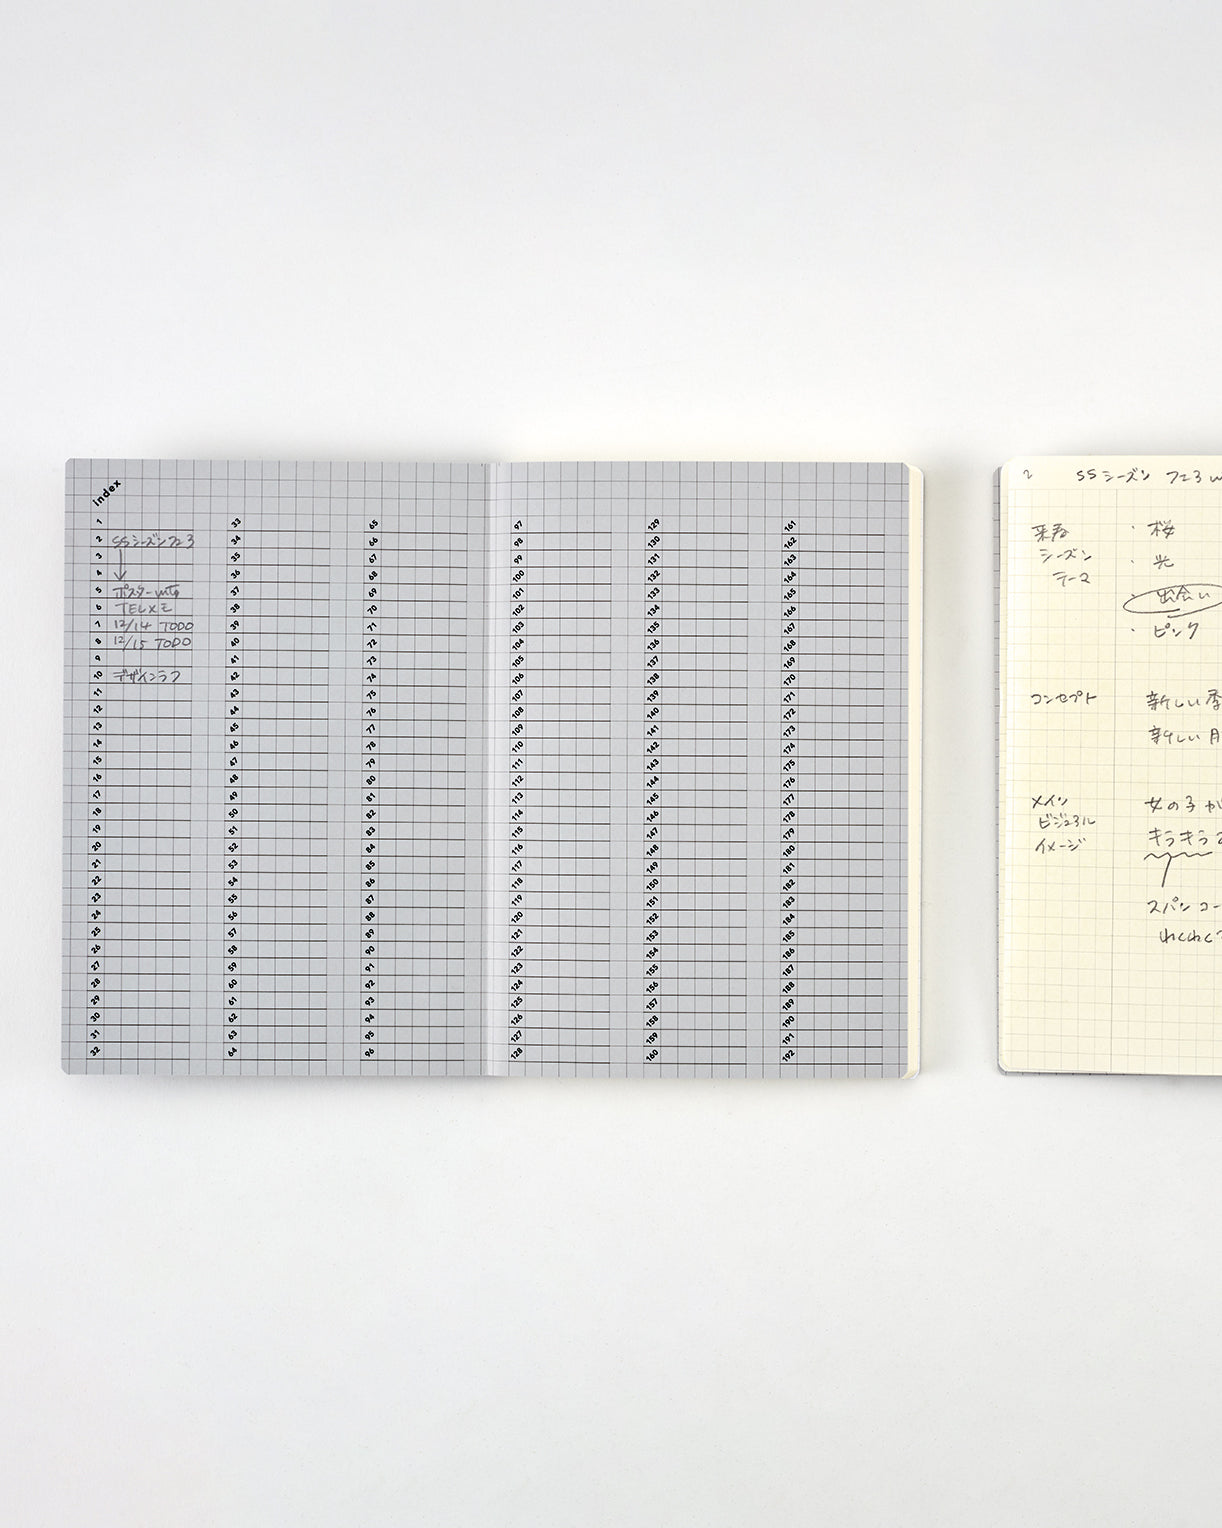 index
1
2 SSシーズンフェア
3
4
5 ポスターmtg
6 TELメモ
7 12/14 TODO
8 12/15 TODO
9
10 デザインラフ
11
12
13
14
15
16
17
18
19
20
21
22
23
24
25
26
27
28
29
30
31
32
33
34
35
36
37
38
39
40
41
42
43
44
45
46
47
48
49
50
51
52
53
54
55
56
57
58
59
60
61
62
63
64
65
66
67
68
69
70
71
72
73
74
75
76
77
78
79
80
81
82
83
84
85
86
87
88
89
90
91
92
93
94
95
96
97
98
99
100
101
102
103
104
105
106
107
108
109
110
111
112
113
114
115
116
117
118
119
120
121
122
123
124
125
126
127
128
129
130
131
132
133
134
135
136
137
138
139
140
141
142
143
144
145
146
147
148
149
150
151
152
153
154
155
156
157
158
159
160
161
162
163
164
165
166
167
168
169
170
171
172
173
174
175
176
177
178
179
180
181
182
183
184
185
186
187
188
189
190
191
192
2 SSシーズン フェア
来春
シーズン
テーマ
・桜
・光
・出会い
・ピンク
コンセプト
新しい季
新しい
メイン
ビジュアル
イメージ
女の子が
キラキラ
スパンコー
わくわく